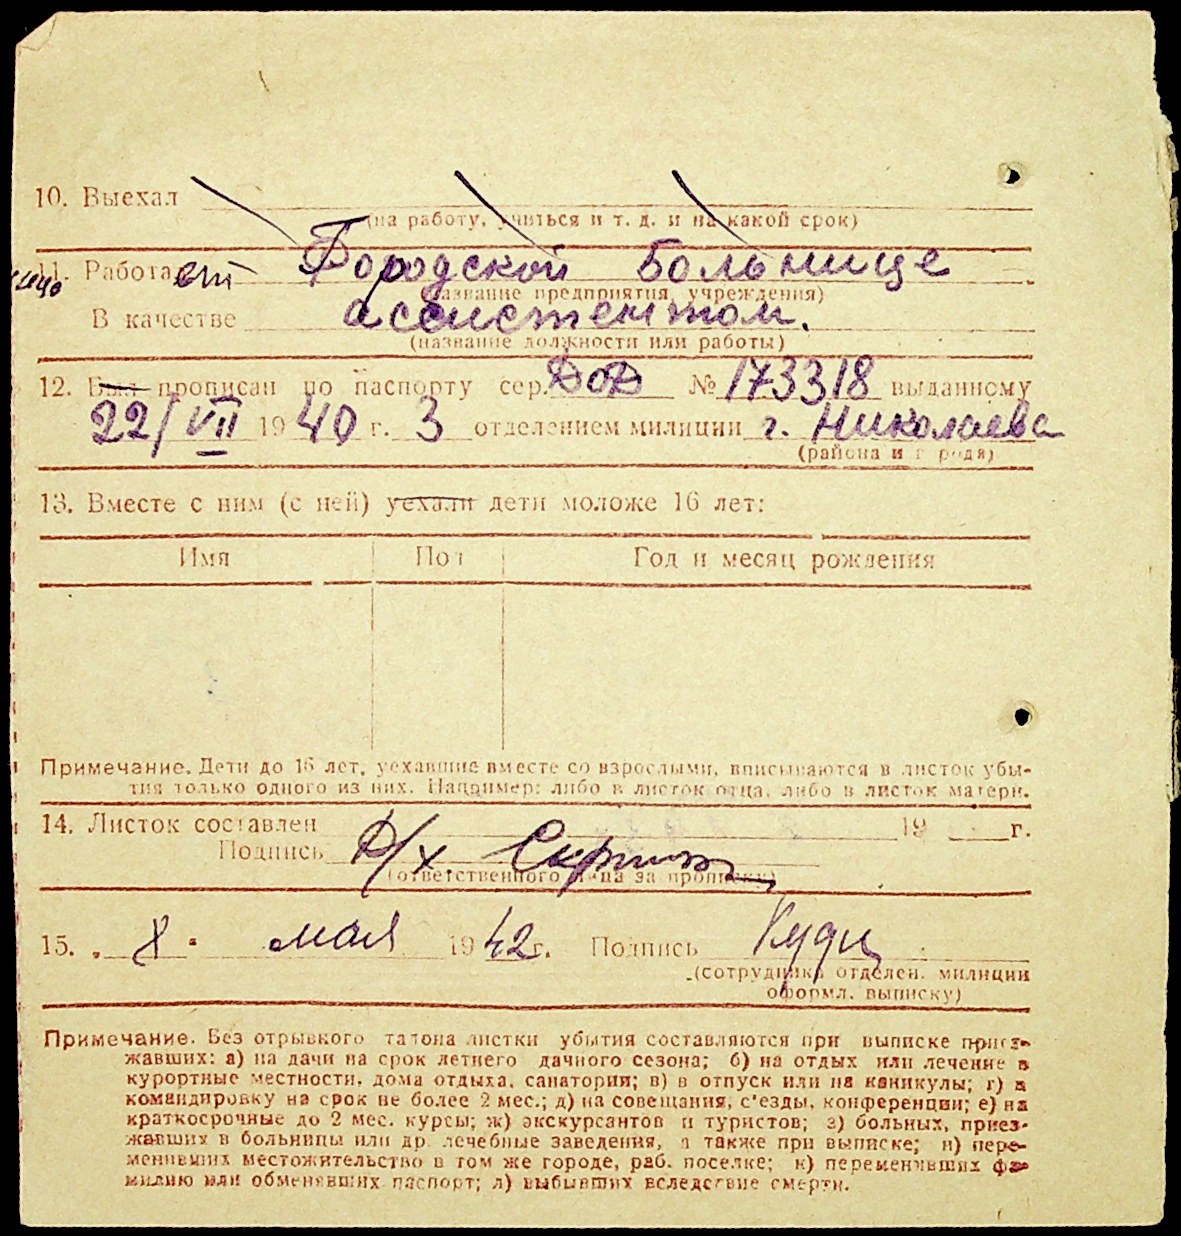 10. Выехал
(на работу, учиться и т. д. и на какой срок)
11. Работает Городской Больнице
(название предприятия, учреждения)
В качестве ассистентом.
(название должности или работы)
12. Был прописан по паспорту сер. ДоД № 173318 выданному
22/VII 1940 г. 3 отделением милиции г. Николаева
(района и города)
13. Вместе с ним (с ней) уехали дети моложе 16 лет:
Имя Пол Год и месяц рождения
Примечание. Дети до 16 лет, уехавшие вместе со взрослыми, вписываются в листок убы-
тия только одного из них. Например: либо в листок отца, либо в листок матери.
14. Листок составлен 19 г.
Подпись Д/х
(ответственного лица за прописку)
15. „8" мая 1942 г. Подпись
(сотрудника отделен. милиции
оформл. выписку)
Примечание. Без отрывного талона листки убытия составляются при выписке приез-
жавших: а) на дачи на срок летнего дачного сезона; б) на отдых или лечение в
курортные местности, дома отдыха, санатории; в) в отпуск или на каникулы; г) в
командировку на срок не более 2 мес.; д) на совещания, с'езды, конференции; е) на
краткосрочные до 2 мес. курсы; ж) экскурсантов и туристов; з) больных, приез-
жавших в больницы или др. лечебные заведения, а также при выписке; и) пере-
менивших местожительство в том же городе, раб. поселке; к) переменивших фа-
милию или обменявших паспорт; л) выбывших вследствие смерти.